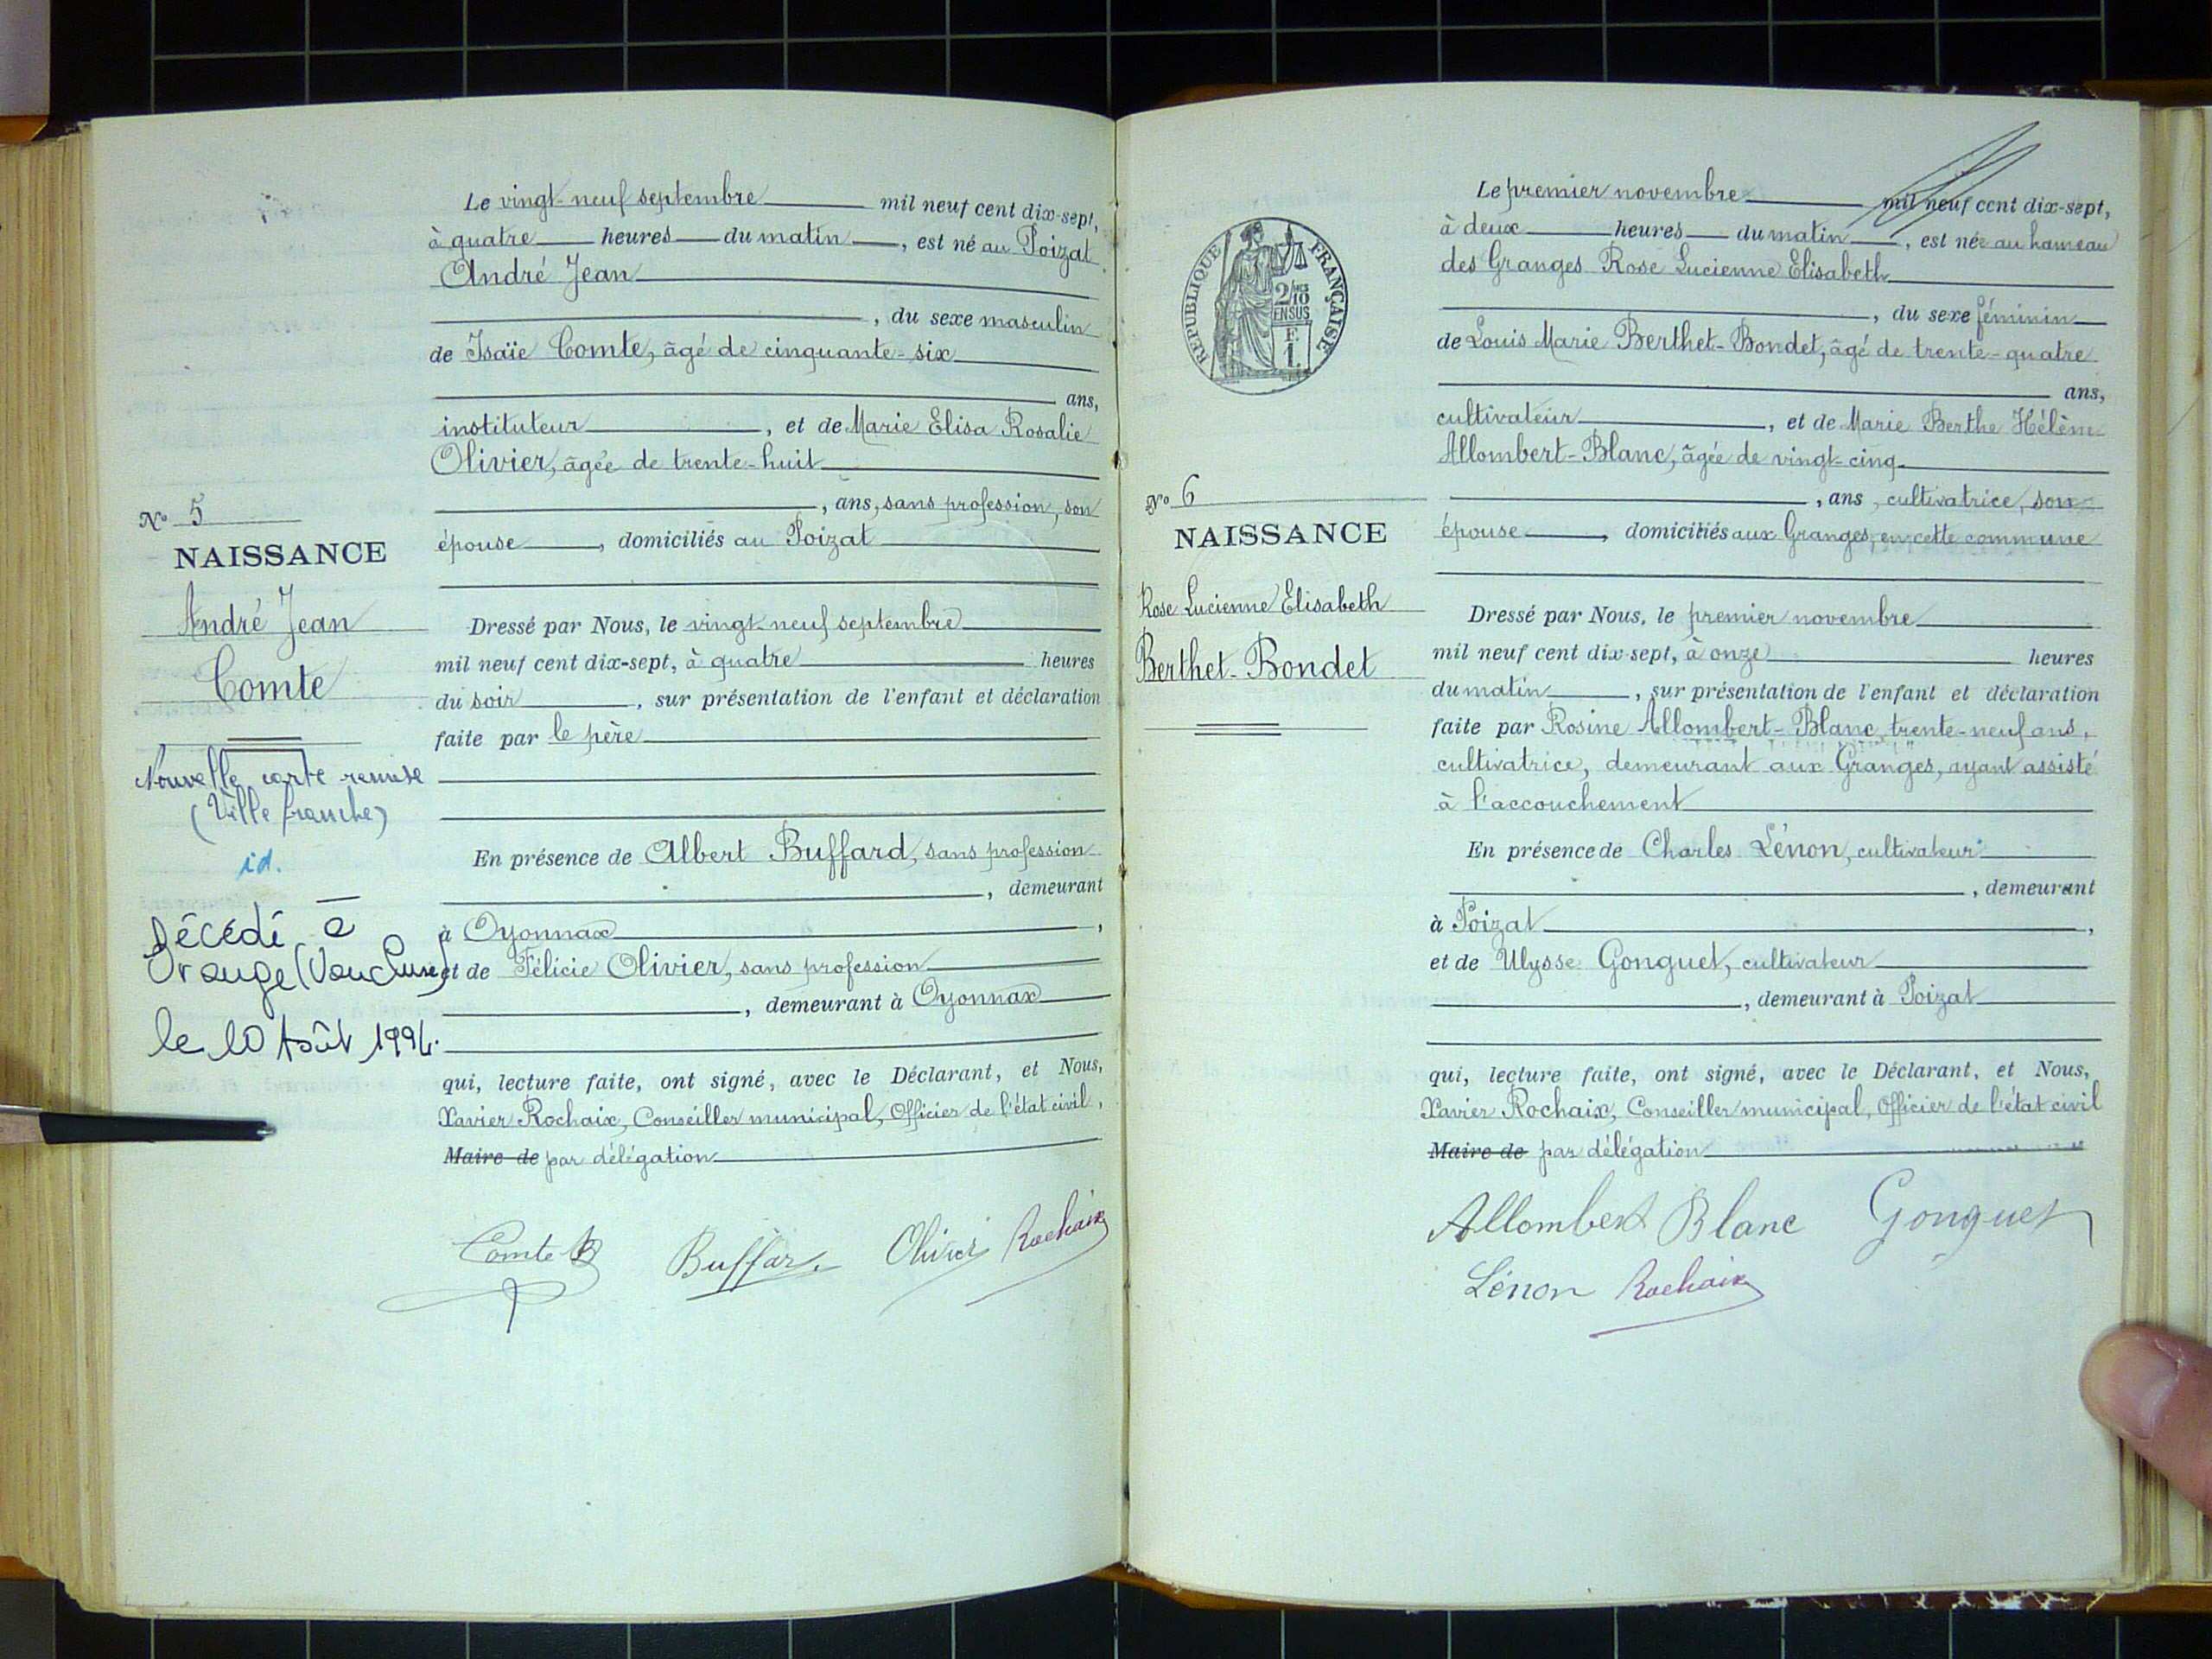 Le vingt-neuf septembre mil neuf cent dix-sept,
à quatre heures du matin, est né au Poizat
André Jean
, du sexe masculin
de Isaïe Comte, âgé de cinquante-six
ans,
instituteur, et de Marie Elisa Rosalie
Olivier, âgée de trente-huit
, ans, sans profession, son
épouse, domiciliés au Poizat
Dressé par Nous, le vingt-neuf septembre
mil neuf cent dix-sept, à quatre heures
du soir, sur présentation de l'enfant et déclaration
faite par le père
En présence de Albert Buffard, sans profession
, demeurant
à Oyonnax,
et de Félicie Olivier, sans profession
, demeurant à Oyonnax
qui, lecture faite, ont signé, avec le Déclarant, et Nous,
Xavier Rochaix, Conseiller municipal, Officier de l'état civil,
Maire de par délégation
Comte
Buffar
Olivier
Rochaix
N° 5
NAISSANCE
André Jean
Comte
Nouvelle carte remise
(Villefranche)
id.
Décédé à
Orange (Vaucluse)
le 10 Août 1994.
RÉPUBLIQUE FRANÇAISE
2/10
EN SUS
F.
1.
N° 6
NAISSANCE
Rose Lucienne Elisabeth
Berthet-Bondet
Le premier novembre mil neuf cent dix-sept,
à deux heures du matin, est née au hameau
des Granges Rose Lucienne Elisabeth
, du sexe féminin
de Louis Marie Berthet-Bondet, âgé de trente-quatre
ans,
cultivateur, et de Marie Berthe Hélène
Allombert-Blanc, âgée de vingt-cinq
, ans, cultivatrice, son
épouse, domiciliés aux Granges, en cette commune
Dressé par Nous, le premier novembre
mil neuf cent dix-sept, à onze heures
du matin, sur présentation de l'enfant et déclaration
faite par Rosine Allombert-Blanc, trente-neuf ans,
cultivatrice, demeurant aux Granges, ayant assisté
à l'accouchement
En présence de Charles Lénon, cultivateur
, demeurant
à Poizat,
et de Ulysse Gonguet, cultivateur
, demeurant à Poizat
qui, lecture faite, ont signé, avec le Déclarant, et Nous,
Xavier Rochaix, Conseiller municipal, Officier de l'état civil
Maire de par délégation
Allombert Blanc Gonguet
Lénon Rochaix